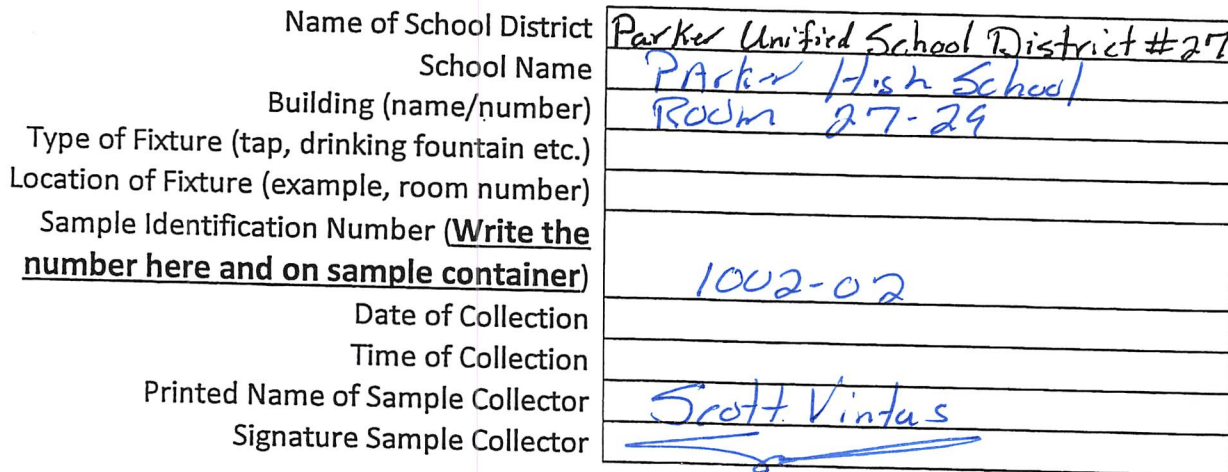 Name of School District Parker Unified School District #27
School Name Parker High School
Building (name/number) Room 27-29
Type of Fixture (tap, drinking fountain etc.)
Location of Fixture (example, room number)
Sample Identification Number (Write the
number here and on sample container) 1002-02
Date of Collection
Time of Collection
Printed Name of Sample Collector Scott Vintus
Signature Sample Collector